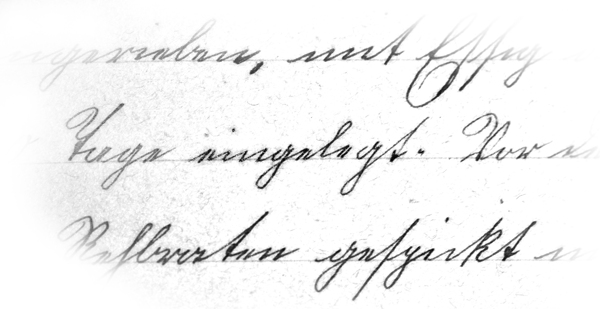 ngerieben, mit Essig
Tage eingelegt. Vor
Rehbraten gespickt